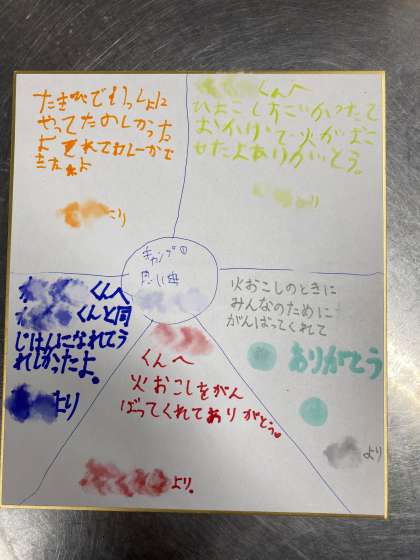 たきびでもいっしょに
やってたのしかった
よ それでカレーがで
きたね
より
くんへ
ひおこしすごいかったて
おかげで火がおこ
せたよありがとう。
より
キャンプの
思い出
くんへ
くんと同
じはんになれてう
れしかったよ。
より
くんへ
火おこしをがん
ばってくれてありがとう。
より。
火おこしのときに
みんなのために
がんばってくれて
ありがとう
より